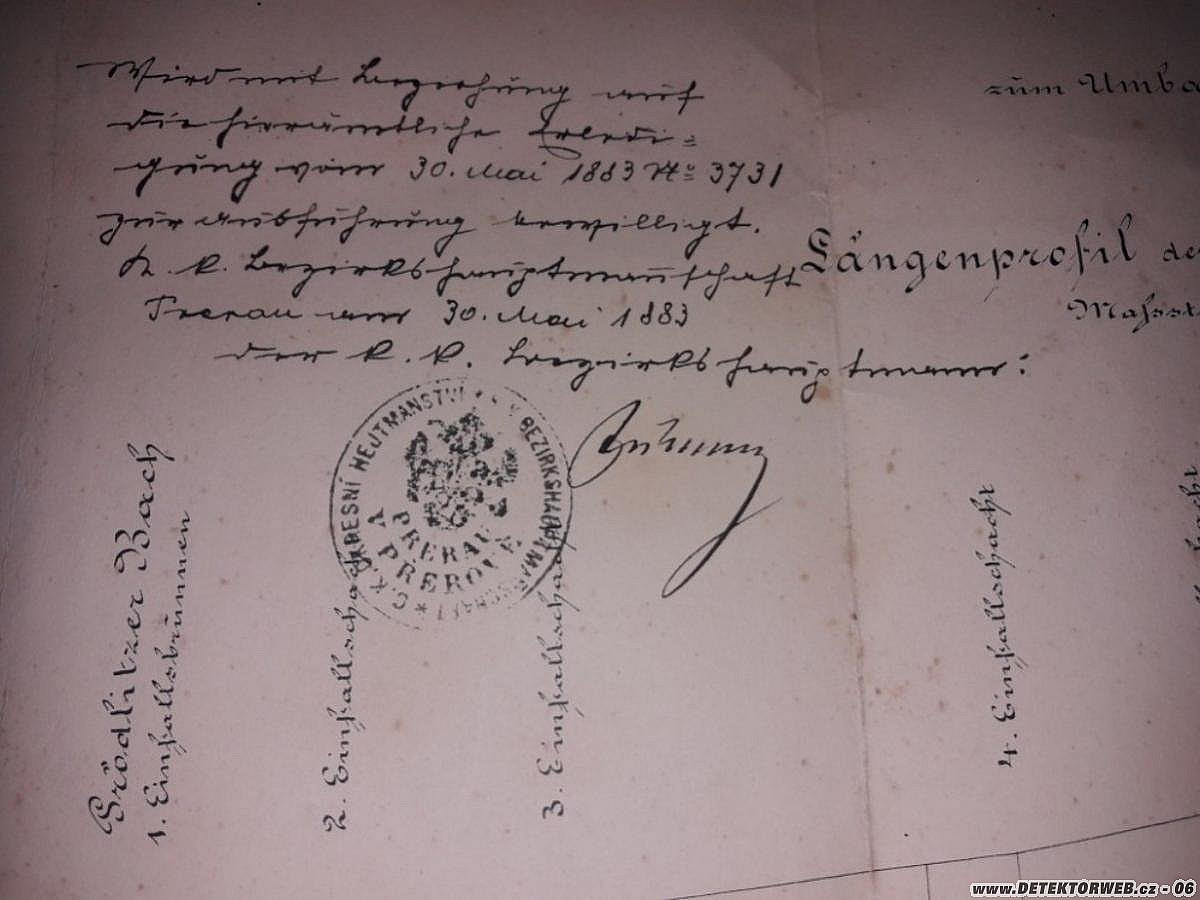 Wird mit Beziehung auf
die hierämtliche Erledi=
gung vom 30. Mai 1883 No 3731
zur Ausführung bewilligt.
K. k. Bezirkshauptmannschaft
Prerau am 30. Mai 1883
der k. k. Bezirkshauptmann:
OKRESNÍ HEJTMANSTVÍ
K. K. BEZIRKSHAUPTMANNSCHAFT
PRERAU
PŘEROVĚ
zum Umba
Längenprofil de
Massst
Grödlitzer Bach
1. Einfallsbrunnen
2. Einfallschacht
3. Einfallschacht
4. Einfallschacht
www.DETEKTORWEB.cz - 06